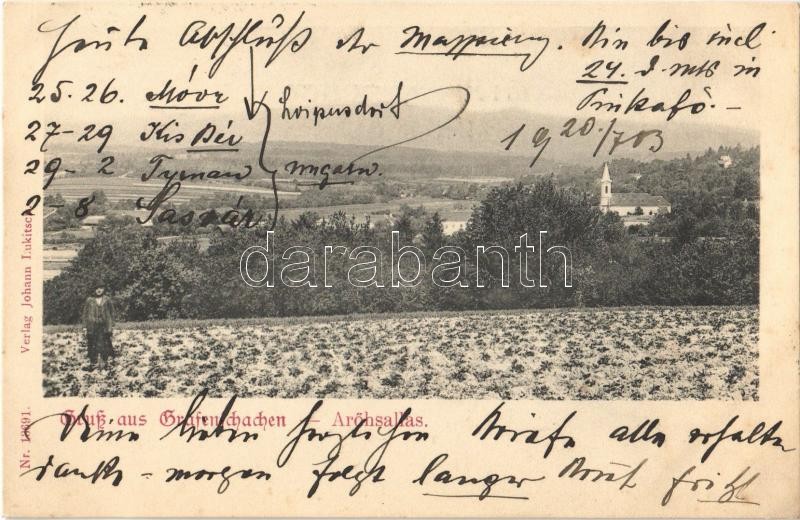 Heute Abschluß der Mappierung. Bin bis incl
24. d. mts in
Pinkafö. –
19 20./7 03
25. 26. Móvr
27-29 Kis Bér
29-2 Tyrnau
2-8 Sasvár
Loipersdorf
ungarn
darabanth
Verlag Johann Lukitsch
Gruß aus Grafenschachen — Aröhsallas.
Deine lieben herzlichen Briefe alle erhalten
danke – morgen folgt langer Brief Fritzl